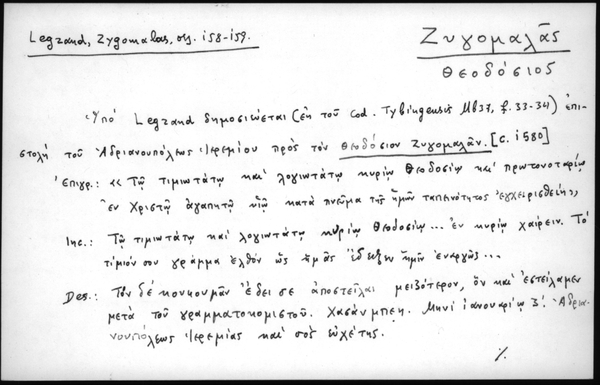 Legrand, Zygomalas, σσ. 158-159.
Ζυγομαλᾶς
Θεοδόσιος
Ὑπό Legrand δημοσιεύεται (ἐκ τοῦ Cod. Tybingensis Mb37, f. 33-34) ἐπι-
στολή τοῦ Ἀδριανουπόλεως Ἱερεμίου πρὸς τὸν Θεοδόσιον Ζυγομαλᾶν. [c. 1580]
Ἐπιγρ.: «Τῷ τιμιωτάτῳ καὶ λογιωτάτῳ κυρίῳ Θεοδοσίῳ καὶ πρωτονοταρίῳ
ἐν Χριστῷ ἀγαπητῷ υἱῷ κατὰ πνεῦμα τῆς ἡμῶν ταπεινότητος ἐγχειρισθείη»,
Inc.: Τῷ τιμιωτάτῳ καὶ λογιωτάτῳ κυρίῳ Θεοδοσίῳ... ἐν κυρίῳ χαίρειν. Τὸ
τίμιόν σου γράμμα ἐλθὸν ὡς ἡμᾶς ἔδειξεν ἡμῖν ἐναργῶς...
Des.: Τὸν δὲ κουκουμᾶν ἔδει σε ἀποστεῖλαι μειζότερον, ὃν καὶ ἐστείλαμεν
μετὰ τοῦ γραμματοκομιστοῦ. Χασάνμπεη. Μηνὶ ἰανουαρίῳ 3. Ἀδρια-
νουπόλεως Ἱερεμίας καὶ σὸς εὐχέτης.
./.